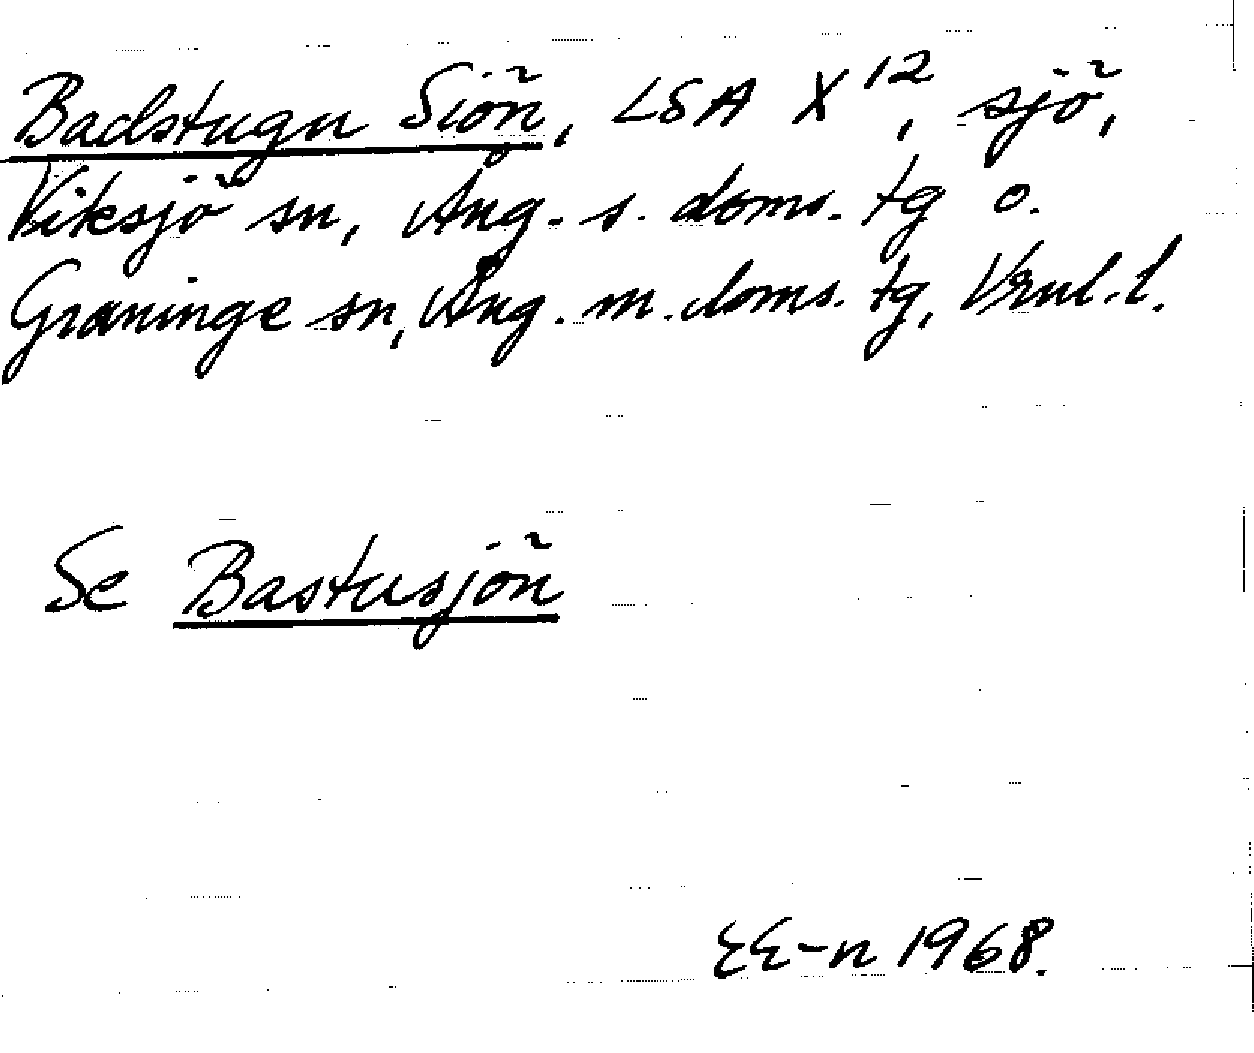 Badstugu Siön, LSA X12, sjö,
Viksjö sn, Ång. s. doms. tg o.
Graninge sn, Ång. m. doms. tg, Vrnl. l.
Se Bastusjön
EE-n 1968.